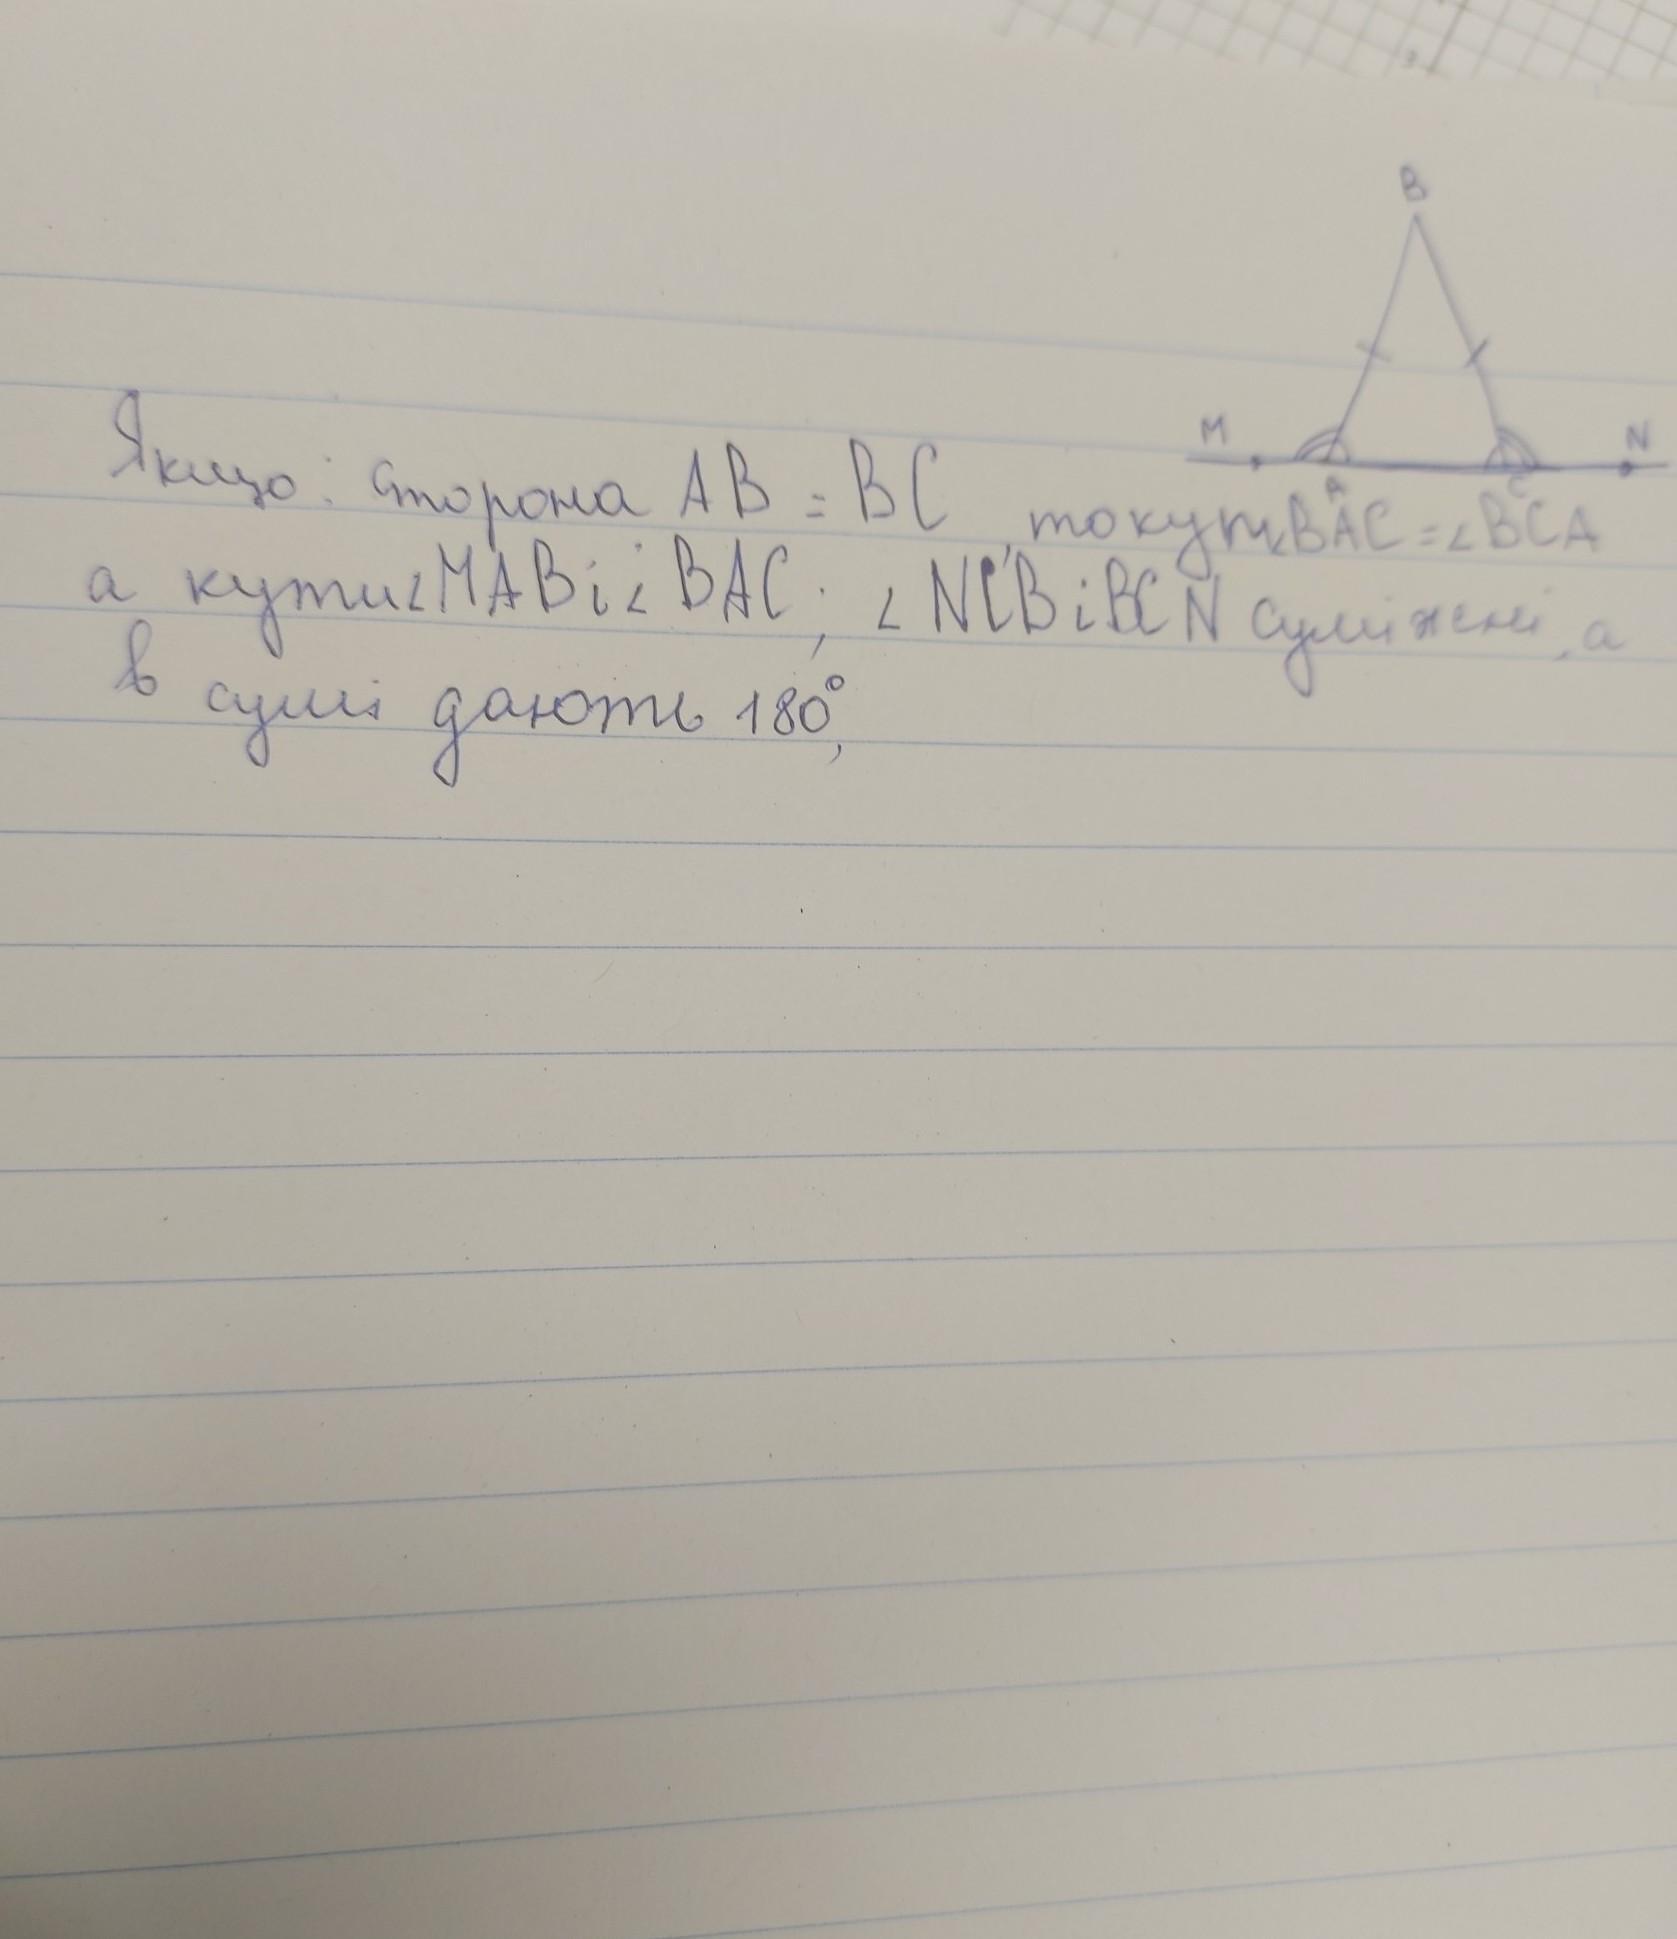 B
M N
A C
Якщо: сторона AB = BC, то кут∠BAC = ∠BCA
а кути∠MAB і ∠ BAC; ∠ NCB і BCN суміжні, а
в сумі дають 180°,